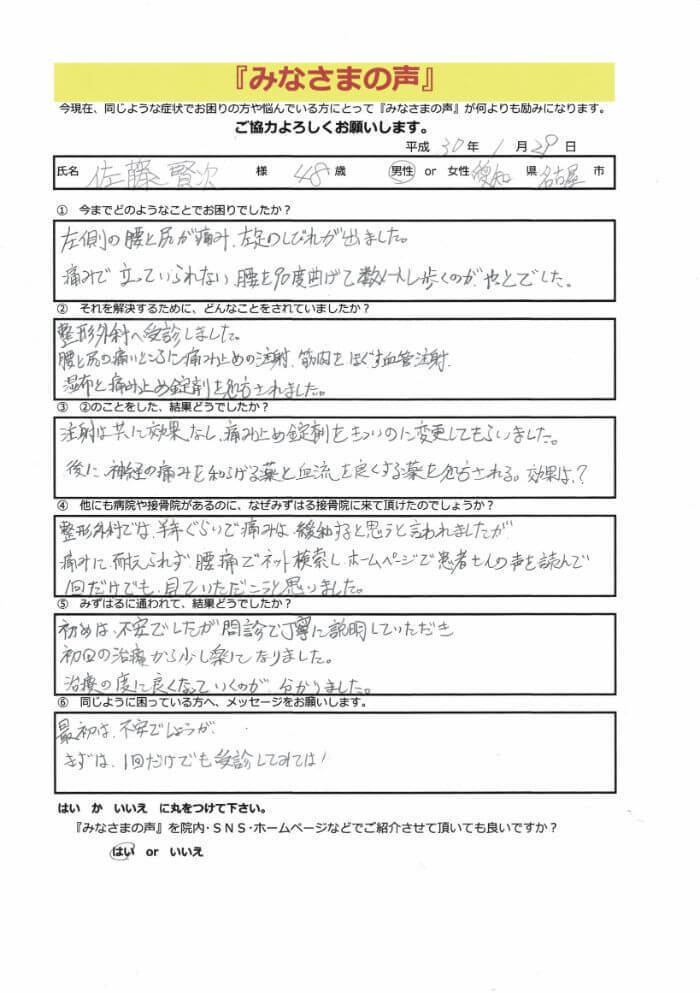 『みなさまの声』
今現在、同じような症状でお困りの方や悩んでいる方にとって『みなさまの声』が何よりも励みになります。
ご協力よろしくお願いします。
平成 30 年 1 月 29 日
氏名 佐藤 賢次 様 48 歳 男性 or 女性 愛知 県 名古屋 市
① 今までどのようなことでお困りでしたか？
左側の腰と尻が痛み、左足のしびれが出ました。
痛みで立っていられない、腰を90度曲げて数メートル歩くのがやっとでした。
② それを解決するために、どんなことをされていましたか？
整形外科へ受診しました。
腰と尻の痛いところに痛み止めの注射、筋肉をほぐす血管注射、
湿布と痛み止め錠剤を処方されました。
③ ②のことをした、結果どうでしたか？
注射は共に効果なし、痛み止め錠剤をきついのに変更してもらいました。
後に、神経の痛みを和らげる薬と血流を良くする薬を処方される。効果は、？
④ 他にも病院や接骨院があるのに、なぜみずはる接骨院に来て頂けたのでしょうか？
整形外科では、半年ぐらいで痛みは、緩和すると思うと言われましたが
痛みに耐えられず、腰痛でネット検索し、ホームページで患者さんの声を読んで
1回だけでも、見ていただこうと思いました。
⑤ みずはるに通われて、結果どうでしたか？
初めは、不安でしたが問診で丁寧に説明していただき
初回の治療から少し楽になりました。
治療の度に良くなっていくのが、分かりました。
⑥ 同じように困っている方へ、メッセージをお願いします。
最初は、不安でしょうが、
まずは、1回だけでも受診してみては！
はい か いいえ に丸をつけて下さい。
『みなさまの声』を院内・ＳＮＳ・ホームページなどでご紹介させて頂いても良いですか？
はい or いいえ